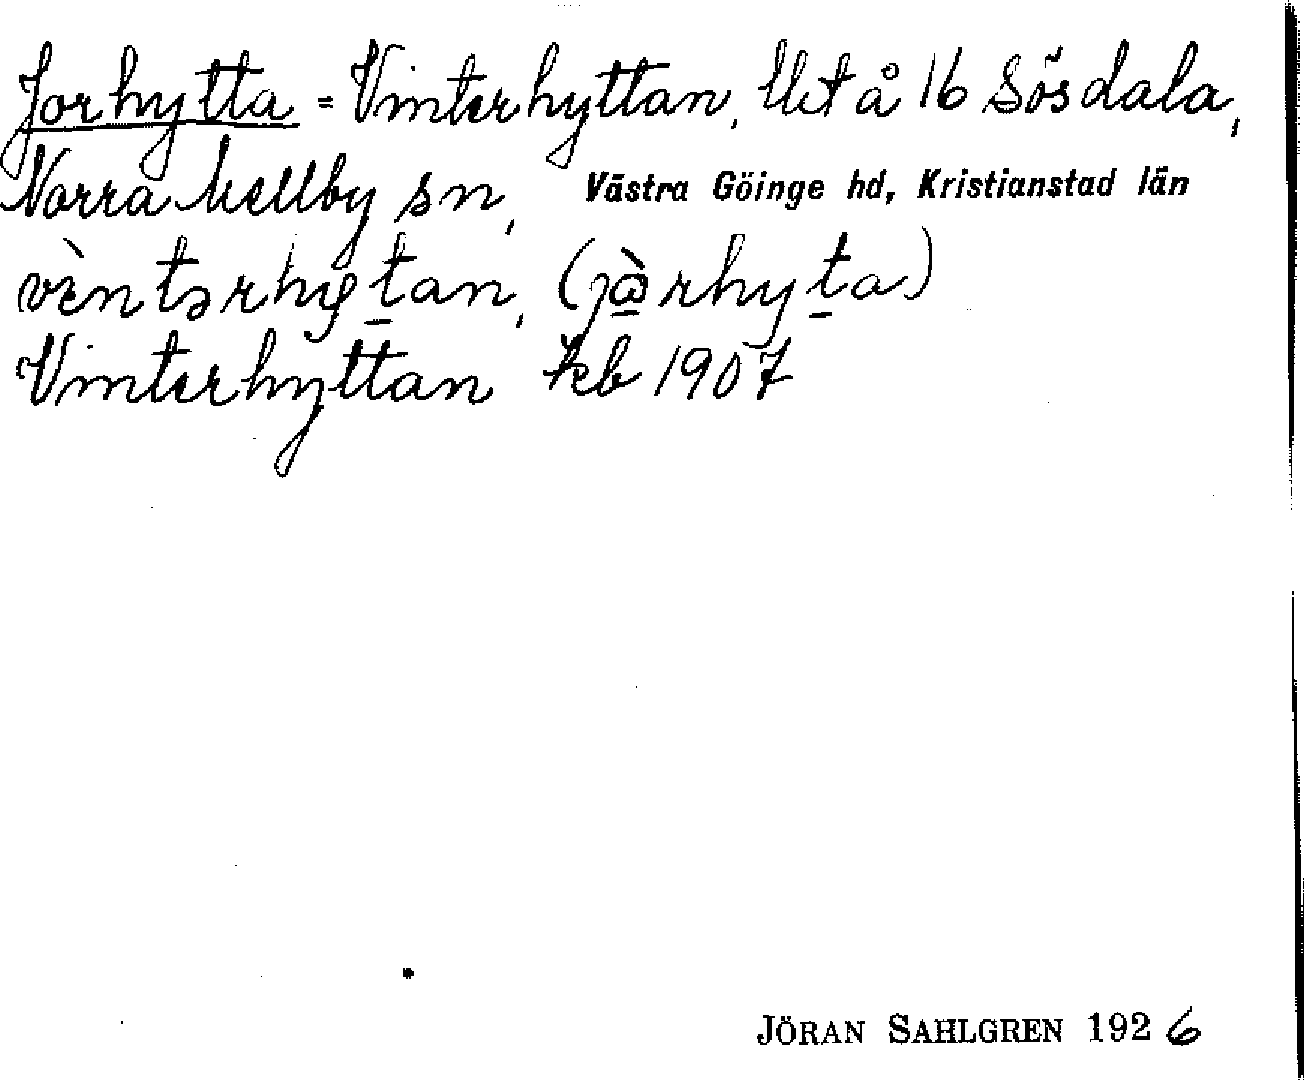 Jorhytta = Vinterhyttan, lht å 16 Sösdala,
Norra Mellby sn, Västra Göinge hd, Kristianstad län
vèntərhytan, (jàrhyta)
Vinterhyttan kb 1907
JÖRAN SAHLGREN 1926